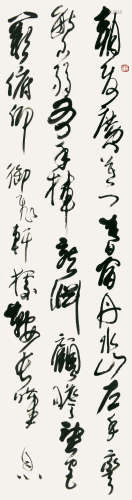 朝發廣莫門暮宿丹水山左手彎
繁弱右手揮龍淵顧瞻望宮
闕俯仰御飛軒據鞍長嘆息